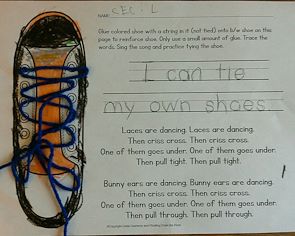 NAME: CECIL
Glue colored shoe with a string in it (not tied) onto b/w shoe on this
page to reinforce shoe. Only use a small amount of glue. Trace the
words. Sing the song and practice tying the shoe.
I can tie
my own shoes.
Laces are dancing. Laces are dancing.
Then criss cross. Then criss cross.
One of them goes under. One of them goes under.
Then pull tight. Then pull tight.
Bunny ears are dancing. Bunny ears are dancing.
Then criss cross. Then criss cross.
One of them goes under. One of them goes under.
Then pull through. Then pull through.